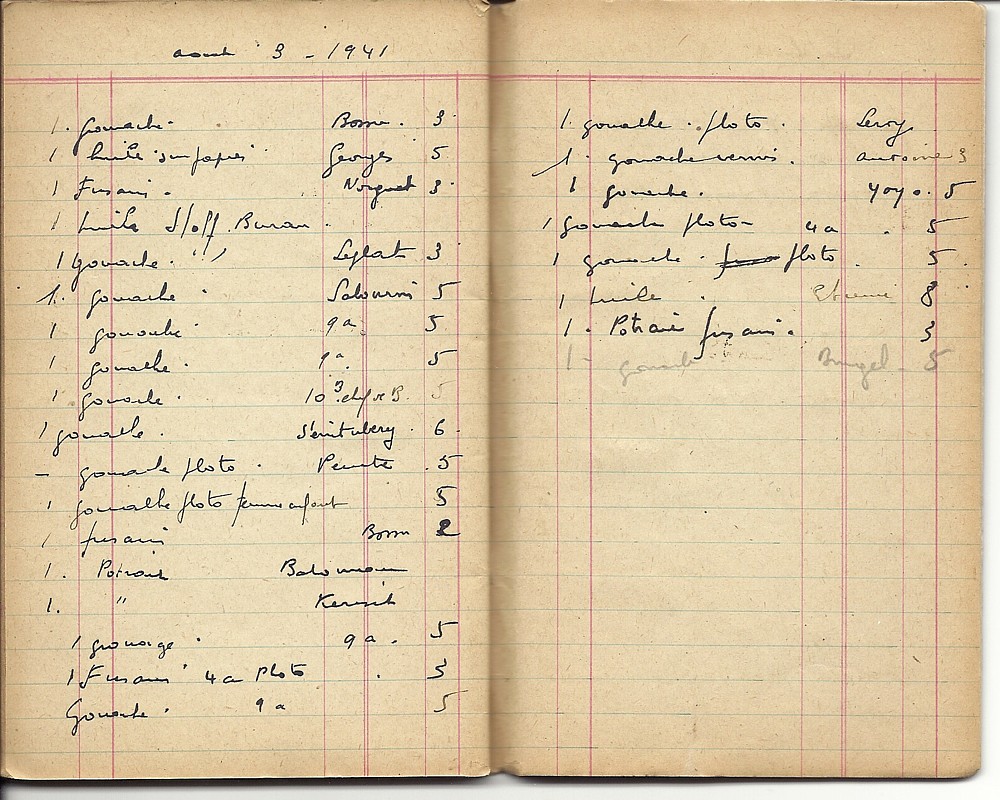 aout 3 - 1941
1. Gouache. Bossu. 3.
1 huile sur papier. Georges 5
1 Fusain. Norguet 3.
1 huile S/off. Buran.
1 gouache. '' Leplat 3
1. gouache. 5
1 gouache. 9a. 5
1 gouache. 9a. 5
1 gouache. 10 5
1 gouache. 6.
- gouache floto. Peinte .5
1 gouache floto femme enfant 5
1 fusain Bossu 2
1. Potrait
1. "
1 grouage. 9a. 5
1 Fusain 4a Photo . 3
Gouache. 9a 5
1. gouache. floto. Leroy
1. gouache vernis. antoine 3
1 gouache. yoyo. 5
1 gouache floto- 4a . 5
1 gouache. floto . 5.
1 huile . Etienne 8
1. Potrait fusain. 3
1- gouache 5